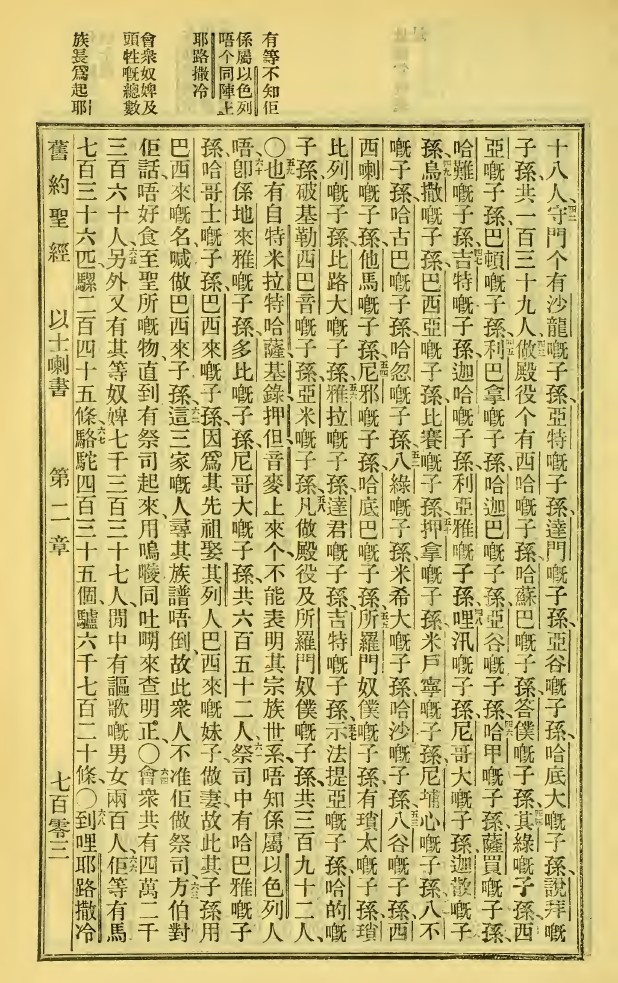 有等不知佢
係屬以色列
唔个同陣上
耶路撒冷
會衆奴婢及
頭牲嘅總數
族長爲起耶
十八人守門个有沙龍嘅子孫亞特嘅子孫達門嘅子孫亞谷嘅子孫哈底大嘅子孫說拜嘅
子孫共一百三十九人做殿役个有西哈嘅子孫哈蘇巴嘅子孫答僕嘅子孫其綠嘅子孫西
亞嘅子孫巴頓嘅子孫利巴拿嘅子孫哈迦巴嘅子孫亞谷嘅子孫哈甲嘅子孫薩買嘅子孫
哈難嘅子孫吉特嘅子孫迦哈嘅子孫利亞雅嘅子孫哩汛嘅子孫尼哥大嘅子孫迦散嘅子
孫烏撒嘅子孫巴西亞嘅子孫比賽嘅子孫押拿嘅子孫米戶寧嘅子孫尼埔心嘅子孫八不
嘅子孫哈古巴嘅子孫哈忽嘅子孫八綠嘅子孫米希大嘅子孫哈沙嘅子孫八谷嘅子孫西
西喇嘅子孫他馬嘅子孫尼邪嘅子孫哈底巴嘅子孫所羅門奴僕嘅子孫有瑣太嘅子孫瑣
比列嘅子孫比路大嘅子孫雅拉嘅子孫達君嘅子孫吉特嘅子孫示法提亞嘅子孫哈的嘅
子孫破基勒西巴音嘅子孫亞米嘅子孫凡做殿役及所羅門奴僕嘅子孫共三百九十二人
〇也有自特米拉特哈薩基錄押但音麥上來个不能表明其宗族世系唔知係屬以色列人
唔卽係地來雅嘅子孫多比嘅子孫尼哥大嘅子孫共六百五十二人祭司中有哈巴雅嘅子
孫哈哥士嘅子孫巴西來嘅子孫因爲其先祖娶其列人巴西來嘅妹子做妻故此其子孫用
巴西來嘅名喊做巴西來子孫這三家嘅人尋其族譜唔倒故此衆人不准佢做祭司方伯對
佢話唔好食至聖所嘅物直到有祭司起來用嗚㖫同吐嘪來查明正〇會衆共有四萬二千
三百六十人另外又有其等奴婢七千三百三十七人閒中有謳歌嘅男女兩百人佢等有馬
七百三十六匹騾二百四十五條駱駝四百三十五個驢六千七百二十條〇到哩耶路撒冷
舊約聖經 以士喇書 第二章 七百零三